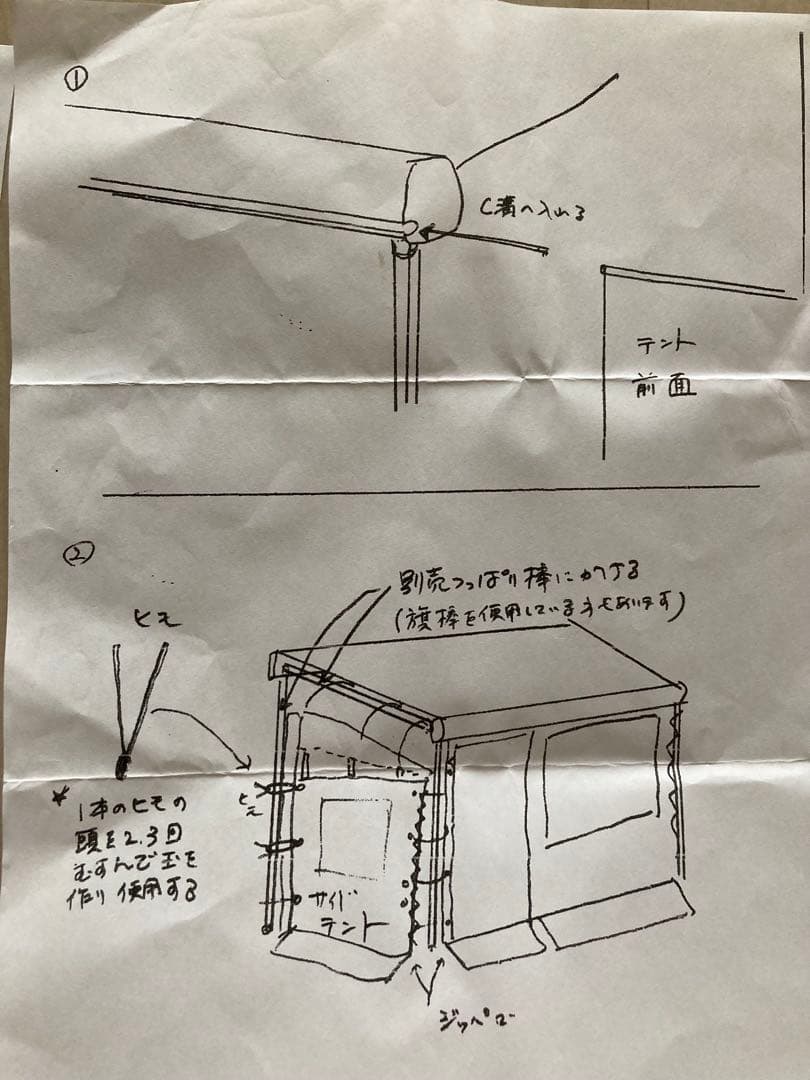 ①
C溝へ入れる
テント
前面
②
別売つっぱり棒にかける
(旗棒を使用している方もあいます)
ヒモ
ヒモ
* 1本のヒモの
頭を2.3回
むすんで玉を
作り使用する
サイド
テント
ジッパー